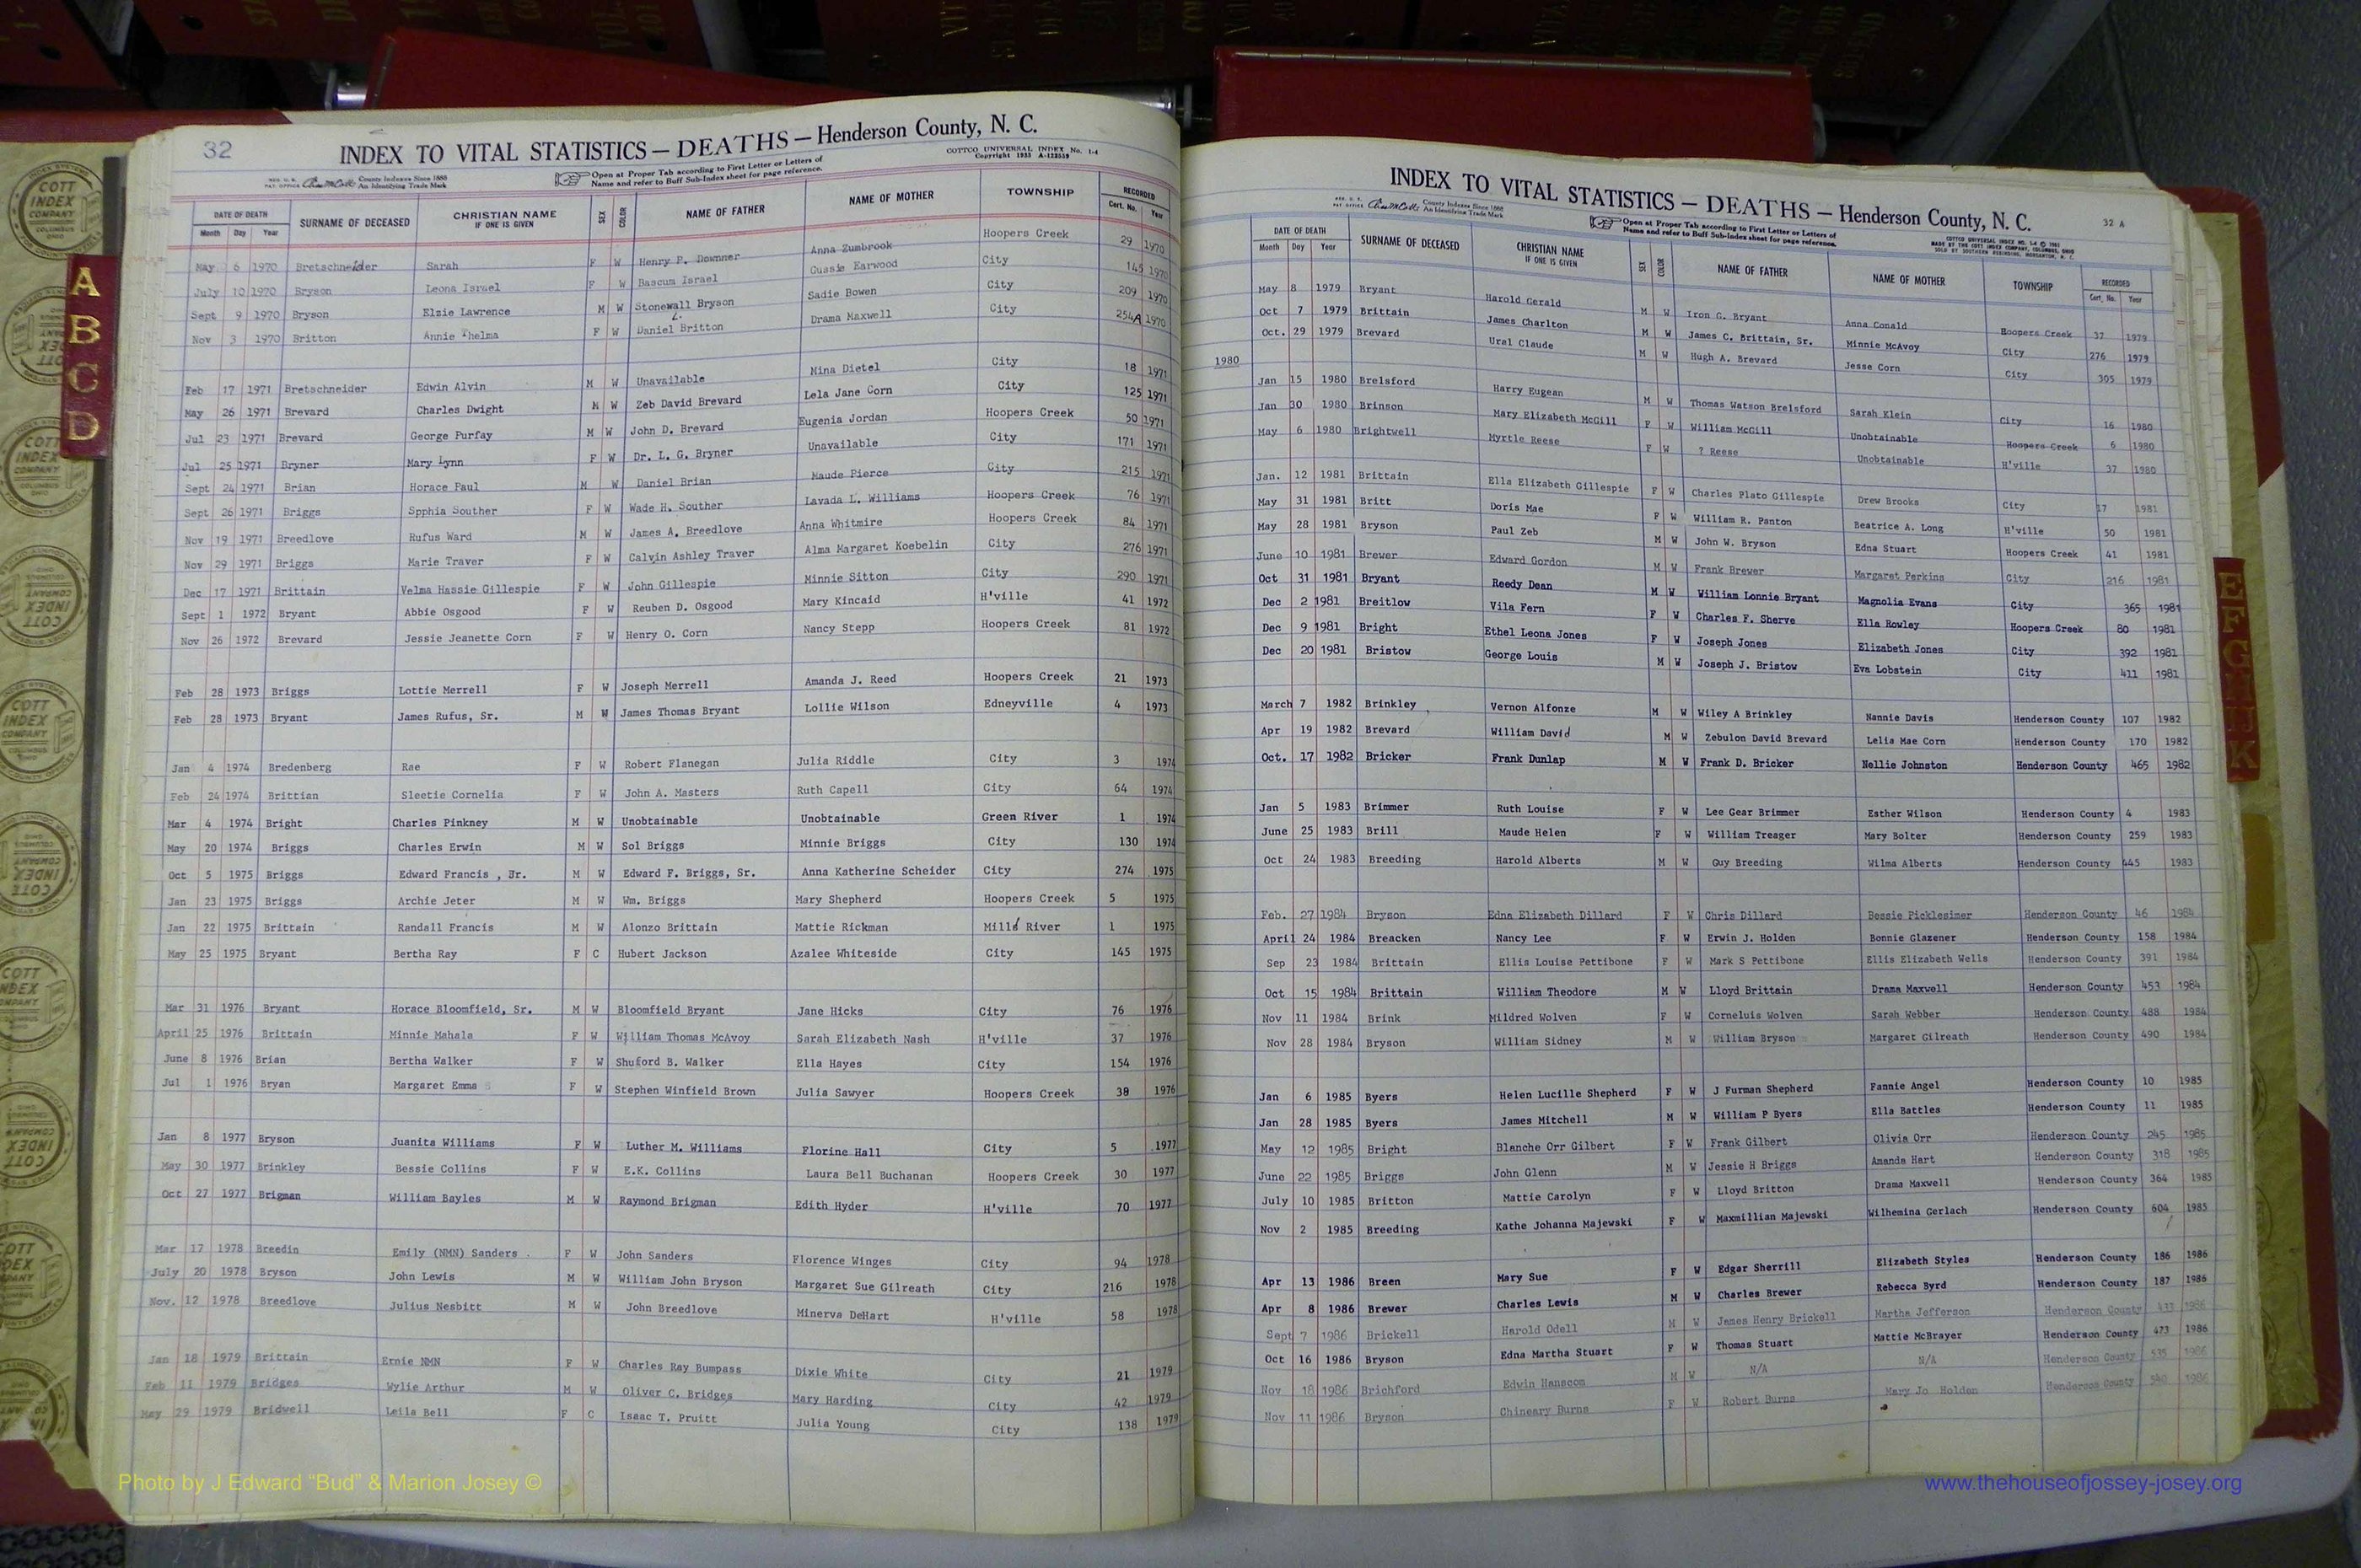 32
INDEX TO VITAL STATISTICS — DEATHS — Henderson County, N. C.
COTTCO UNIVERSAL INDEX No. 1-4
Copyright 1955 A-122559
County Indexes Since 1888
An Identifying Trade Mark
Open at Proper Tab according to First Letter or Letters of
Name and refer to Buff Sub-Index sheet for page reference.
DATE OF DEATH SURNAME OF DECEASED CHRISTIAN NAME IF ONE IS GIVEN SEX COLOR NAME OF FATHER NAME OF MOTHER TOWNSHIP RECORDED
Month Day Year Cert. No. Year
May 6 1970 Bretschneider Sarah F W Henry P. Downner Anna Zumbrook Hoopers Creek 29 1970
July 10 1970 Bryson Leona Israel F W Bascum Israel Gussie Earwood City 145 1970
Sept 9 1970 Bryson Elzie Lawrence M W Stonewall Bryson Sadie Bowen City 209 1970
Nov 3 1970 Britton Annie Thelma F W Daniel L. Britton Drama Maxwell City 254A 1970
Feb 17 1971 Bretschneider Edwin Alvin M W Unavailable Mina Dietel City 18 1971
May 26 1971 Brevard Charles Dwight M W Zeb David Brevard Lela Jane Corn City 125 1971
Jul 23 1971 Brevard George Purfay M W John D. Brevard Eugenia Jordan Hoopers Creek 50 1971
Jul 25 1971 Bryner Mary Lynn F W Dr. L. G. Bryner Unavailable City 171 1971
Sept 24 1971 Brian Horace Paul M W Daniel Brian Maude Pierce City 215 1971
Sept 26 1971 Briggs Spphia Souther F W Wade H. Souther Lavada L. Williams Hoopers Creek 76 1971
Nov 19 1971 Breedlove Rufus Ward M W James A. Breedlove Anna Whitmire Hoopers Creek 84 1971
Nov 29 1971 Briggs Marie Traver F W Calvin Ashley Traver Alma Margaret Koebelin City 276 1971
Dec 17 1971 Brittain Velma Hassie Gillespie F W John Gillespie Minnie Sitton City 290 1971
Sept 1 1972 Bryant Abbie Osgood F W Reuben D. Osgood Mary Kincaid H'ville 41 1972
Nov 26 1972 Brevard Jessie Jeanette Corn F W Henry O. Corn Nancy Stepp Hoopers Creek 81 1972
Feb 28 1973 Briggs Lottie Merrell F W Joseph Merrell Amanda J. Reed Hoopers Creek 21 1973
Feb 28 1973 Bryant James Rufus, Sr. M W James Thomas Bryant Lollie Wilson Edneyville 4 1973
Jan 4 1974 Bredenberg Rae F W Robert Flanegan Julia Riddle City 3 1974
Feb 24 1974 Brittian Sleetie Cornelia F W John A. Masters Ruth Capell City 64 1974
Mar 4 1974 Bright Charles Pinkney M W Unobtainable Unobtainable Green River 1 1974
May 20 1974 Briggs Charles Erwin M W Sol Briggs Minnie Briggs City 130 1974
Oct 5 1975 Briggs Edward Francis , Jr. M W Edward F. Briggs, Sr. Anna Katherine Scheider City 274 1975
Jan 23 1975 Briggs Archie Jeter M W Wm. Briggs Mary Shepherd Hoopers Creek 5 1975
Jan 22 1975 Brittain Randall Francis M W Alonzo Brittain Mattie Rickman Mills River 1 1975
May 25 1975 Bryant Bertha Ray F C Hubert Jackson Azalee Whiteside City 145 1975
Mar 31 1976 Bryant Horace Bloomfield, Sr. M W Bloomfield Bryant Jane Hicks City 76 1976
April 25 1976 Brittain Minnie Mahala F W William Thomas McAvoy Sarah Elizabeth Nash H'ville 37 1976
June 8 1976 Brian Bertha Walker F W Shuford B. Walker Ella Hayes City 154 1976
Jul 1 1976 Bryan Margaret Emma F W Stephen Winfield Brown Julia Sawyer Hoopers Creek 38 1976
Jan 8 1977 Bryson Juanita Williams F W Luther M. Williams Florine Hall City 5 1977
May 30 1977 Brinkley Bessie Collins F W E.K. Collins Laura Bell Buchanan Hoopers Creek 30 1977
Oct 27 1977 Brigman William Bayles M W Raymond Brigman Edith Hyder H'ville 70 1977
Mar 17 1978 Breedin Emily (NMN) Sanders F W John Sanders Florence Winges City 94 1978
July 20 1978 Bryson John Lewis M W William John Bryson Margaret Sue Gilreath City 216 1978
Nov. 12 1978 Breedlove Julius Nesbitt M W John Breedlove Minerva DeHart H'ville 58 1978
Jan 18 1979 Brittain Ernie NMN F W Charles Ray Bumpass Dixie White City 21 1979
Feb 11 1979 Bridges Wylie Arthur M W Oliver C. Bridges Mary Harding City 42 1979
May 29 1979 Bridwell Leila Bell F C Isaac T. Pruitt Julia Young City 138 1979
INDEX TO VITAL STATISTICS — DEATHS — Henderson County, N. C.
32 A
County Indexes Since 1888
An Identifying Trade Mark
Open at Proper Tab according to First Letter or Letters of
Name and refer to Buff Sub-Index sheet for page reference.
DATE OF DEATH SURNAME OF DECEASED CHRISTIAN NAME IF ONE IS GIVEN SEX COLOR NAME OF FATHER NAME OF MOTHER TOWNSHIP RECORDED
Month Day Year Cert. No. Year
May 8 1979 Bryant Harold Gerald M W Iron G. Bryant Anna Conald Hoopers Creek 37 1979
Oct 7 1979 Brittain James Charlton M W James C. Brittain, Sr. Minnie McAvoy City 276 1979
Oct. 29 1979 Brevard Ural Claude M W Hugh A. Brevard Jesse Corn City 305 1979
1980
Jan 15 1980 Brelsford Harry Eugean M W Thomas Watson Brelsford Sarah Klein City 16 1980
Jan 30 1980 Brinson Mary Elizabeth McGill F W William McGill Unobtainable Hoopers Creek 6 1980
May 6 1980 Brightwell Myrtle Reese F W ? Reese Unobtainable H'ville 37 1980
Jan. 12 1981 Brittain Ella Elizabeth Gillespie F W Charles Plato Gillespie Drew Brooks City 17 1981
May 31 1981 Britt Doris Mae F W William R. Panton Beatrice A. Long H'ville 50 1981
May 28 1981 Bryson Paul Zeb M W John W. Bryson Edna Stuart Hoopers Creek 41 1981
June 10 1981 Brewer Edward Gordon M W Frank Brewer Margaret Perkins City 216 1981
Oct 31 1981 Bryant Reedy Dean M W William Lonnie Bryant Magnolia Evans City 365 1981
Dec 2 1981 Breitlow Vila Fern F W Charles F. Sherve Ella Rowley Hoopers Creek 80 1981
Dec 9 1981 Bright Ethel Leona Jones F W Joseph Jones Elizabeth Jones City 392 1981
Dec 20 1981 Bristow George Louis M W Joseph J. Bristow Eva Lobstein City 411 1981
March 7 1982 Brinkley Vernon Alfonze M W Wiley A Brinkley Nannie Davis Henderson County 107 1982
Apr 19 1982 Brevard William David M W Zebulon David Brevard Lelia Mae Corn Henderson County 170 1982
Oct. 17 1982 Bricker Frank Dunlap M W Frank D. Bricker Nellie Johnston Henderson County 465 1982
Jan 5 1983 Brimmer Ruth Louise F W Lee Gear Brimmer Esther Wilson Henderson County 4 1983
June 25 1983 Brill Maude Helen F W William Treager Mary Bolter Henderson County 259 1983
Oct 24 1983 Breeding Harold Alberts M W Guy Breeding Wilma Alberts Henderson County 445 1983
Feb. 27 1984 Bryson Edna Elizabeth Dillard F W Chris Dillard Bessie Picklesimer Henderson County 46 1984
April 24 1984 Breacken Nancy Lee F W Erwin J. Holden Bonnie Glazener Henderson County 158 1984
Sep 23 1984 Brittain Ellis Louise Pettibone F W Mark S Pettibone Ellis Elizabeth Wells Henderson County 391 1984
Oct 15 1984 Brittain William Theodore M W Lloyd Brittain Drama Maxwell Henderson County 453 1984
Nov 11 1984 Brink Mildred Wolven F W Corneluis Wolven Sarah Webber Henderson County 488 1984
Nov 28 1984 Bryson William Sidney M W William Bryson Margaret Gilreath Henderson County 490 1984
Jan 6 1985 Byers Helen Lucille Shepherd F W J Furman Shepherd Fannie Angel Henderson County 10 1985
Jan 28 1985 Byers James Mitchell M W William P Byers Ella Battles Henderson County 11 1985
May 12 1985 Bright Blanche Orr Gilbert F W Frank Gilbert Olivia Orr Henderson County 245 1985
June 22 1985 Briggs John Glenn M W Jessie H Briggs Amanda Hart Henderson County 318 1985
July 10 1985 Britton Mattie Carolyn F W Lloyd Britton Drama Maxwell Henderson County 364 1985
Nov 2 1985 Breeding Kathe Johanna Majewski F W Maxmillian Majewski Wilhemina Gerlach Henderson County 604 1985
Apr 13 1986 Breen Mary Sue F W Edgar Sherrill Elizabeth Styles Henderson County 186 1986
Apr 8 1986 Brewer Charles Lewis M W Charles Brewer Rebecca Byrd Henderson County 187 1986
Sept 7 1986 Brickell Harold Odell M W James Henry Brickell Martha Jefferson Henderson County 433 1986
Oct 16 1986 Bryson Edna Martha Stuart F W Thomas Stuart Mattie McBrayer Henderson County 473 1986
Nov 18 1986 Brichford Edwin Hanscom M W N/A N/A Henderson County 535 1986
Nov 11 1986 Bryson Chineary Burns F W Robert Burns Mary Jo Holden Henderson County 540 1986
A
B
C
D
E
F
G
H
K
COTT
INDEX
COMPANY
COLUMBUS
OHIO
Photo by J Edward “Bud” & Marion Josey ©
www.thehouseofjossey-josey.org